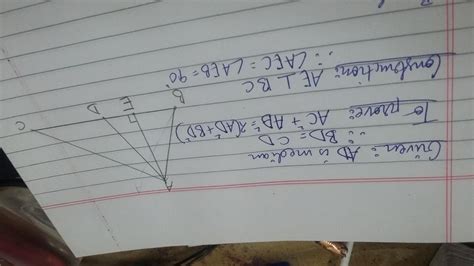 Given: AD is median
∴ BD = CD
To prove: AC² + AB² = 2(AD² + BD²)
Construction: AE ⊥ BC
∴ ∠AEC = ∠AEB = 90°
A
B
E
D
C